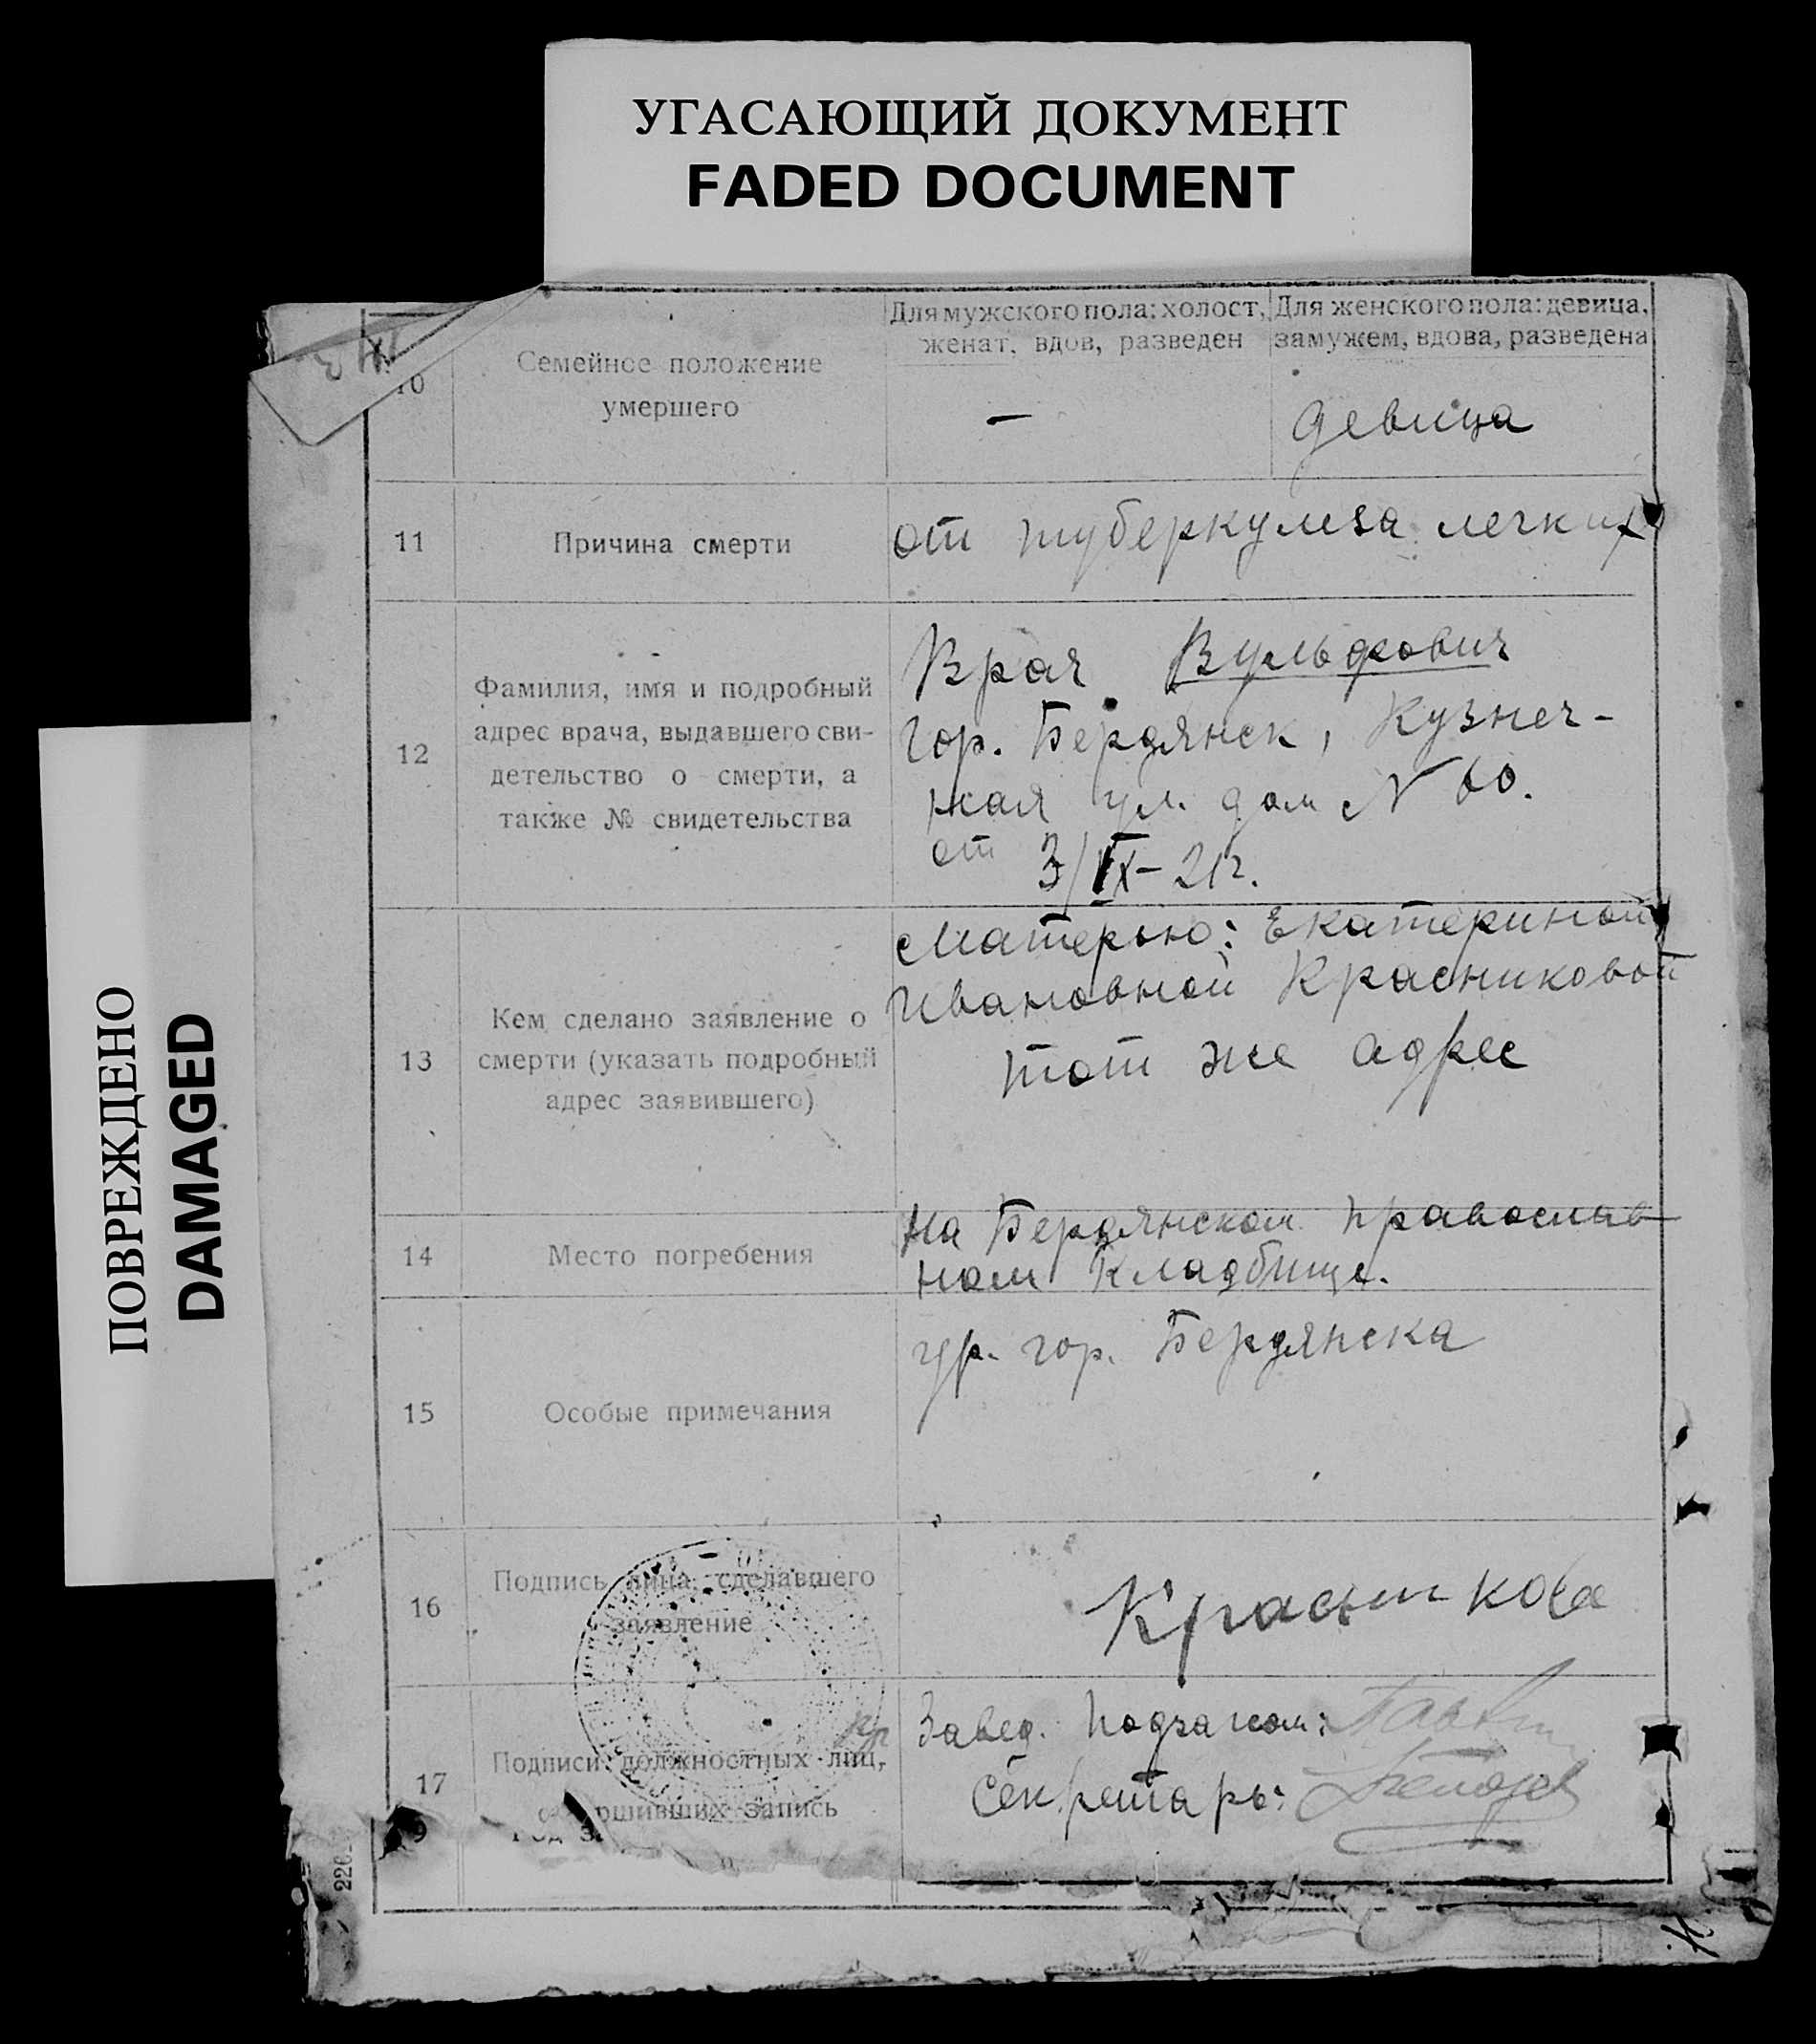 УГАСАЮЩИЙ ДОКУМЕНТ
FADED DOCUMENT
ПОВРЕЖДЕНО
DAMAGED
10
Семейное положение
умершего
Для мужского пола: холост,
женат, вдов, разведен
Для женского пола: девица,
замужем, вдова, разведена
—
девица
11
Причина смерти
от туберкулеза легких
12
Фамилия, имя и подробный
адрес врача, выдавшего сви-
детельство о смерти, а
также № свидетельства
Врач Вульфович
гор. Бердянск, Кузнеч-
ная ул. дом № 60.
от 3/IX-21г.
13
Кем сделано заявление о
смерти (указать подробный
адрес заявившего)
Матерью: Екатериной
Ивановной Красниковой
тот же адрес
14
Место погребения
На Бердянском православ
ном кладбище.
15
Особые примечания
гр. гор. Бердянска
16
Подпись лица, сделавшего
заявление
Красникова
17
Подписи должностных лиц,
ршивших запись
Завед. Подзагсом:
Секретарь:
9
226